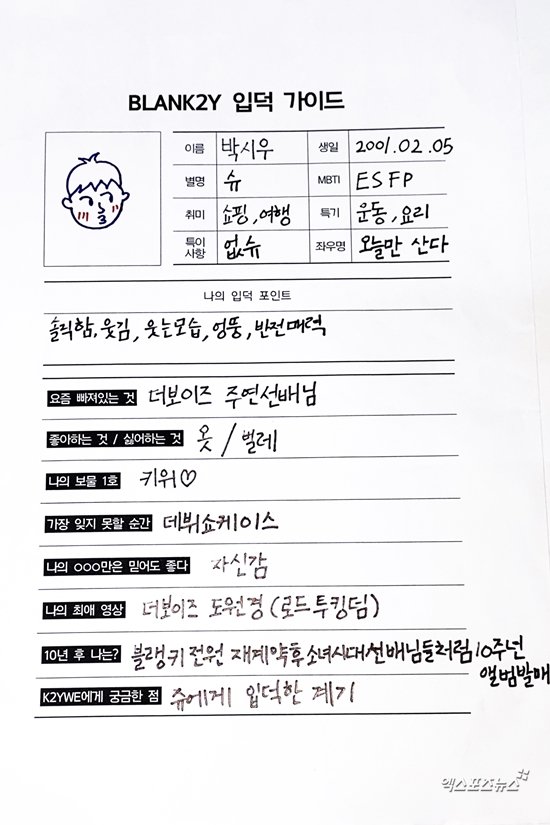 BLANK2Y 입덕 가이드
이름 박시우 생일 2001.02.05
별명 슈 MBTI ESFP
취미 쇼핑, 여행 특기 운동, 요리
특이사항 없슈 좌우명 오늘만 산다
나의 입덕 포인트
솔직함, 웃김, 웃는모습, 엉뚱, 반전매력
요즘 빠져있는 것 더보이즈 주연선배님
좋아하는 것 / 싫어하는 것 옷 / 벌레
나의 보물 1호 키위♡
가장 잊지 못할 순간 데뷔쇼케이스
나의 ooo만은 믿어도 좋다 자신감
나의 최애 영상 더보이즈 도원경 (로드투킹덤)
10년 후 나는? 블랭키전원 재계약후 소녀시대선배님들처럼 10주년
앨범발매
K2YWE에게 궁금한 점 쥬에게 입덕한 계기
엑스포츠뉴스